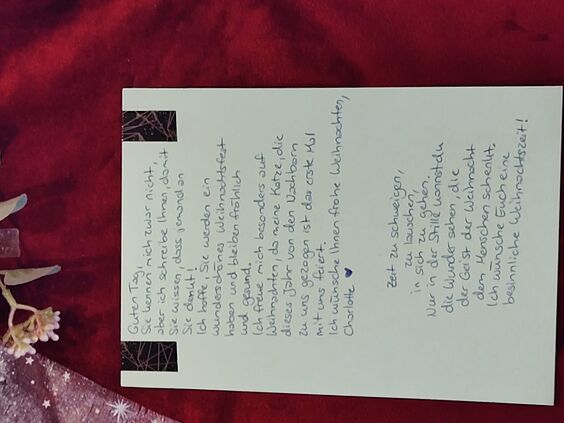 Guten Tag,
Sie kennen mich zwar nicht,
aber ich schreibe Ihnen, damit
Sie wissen, dass jemand an
Sie denkt!
Ich hoffe, Sie werden ein
wunderschönes Weihnachtsfest
haben und bleiben fröhlich
und gesund.
Ich freue mich besonders auf
Weihnachten, da meine Katze, die
dieses Jahr von den Nachbarn
zu uns gezogen ist das erste Mal
mit uns feiert.
Ich wünsche Ihnen frohe Weihnachten,
Charlotte ♥
Zeit zu schweigen,
zu lauschen,
in sich zu gehen.
Nur in der Stille kannst du
die Wunder sehen, die
der Geist der Weihnacht
dem Menschen schenkt.
Ich wünsche Euch eine
besinnliche Weihnachtszeit!